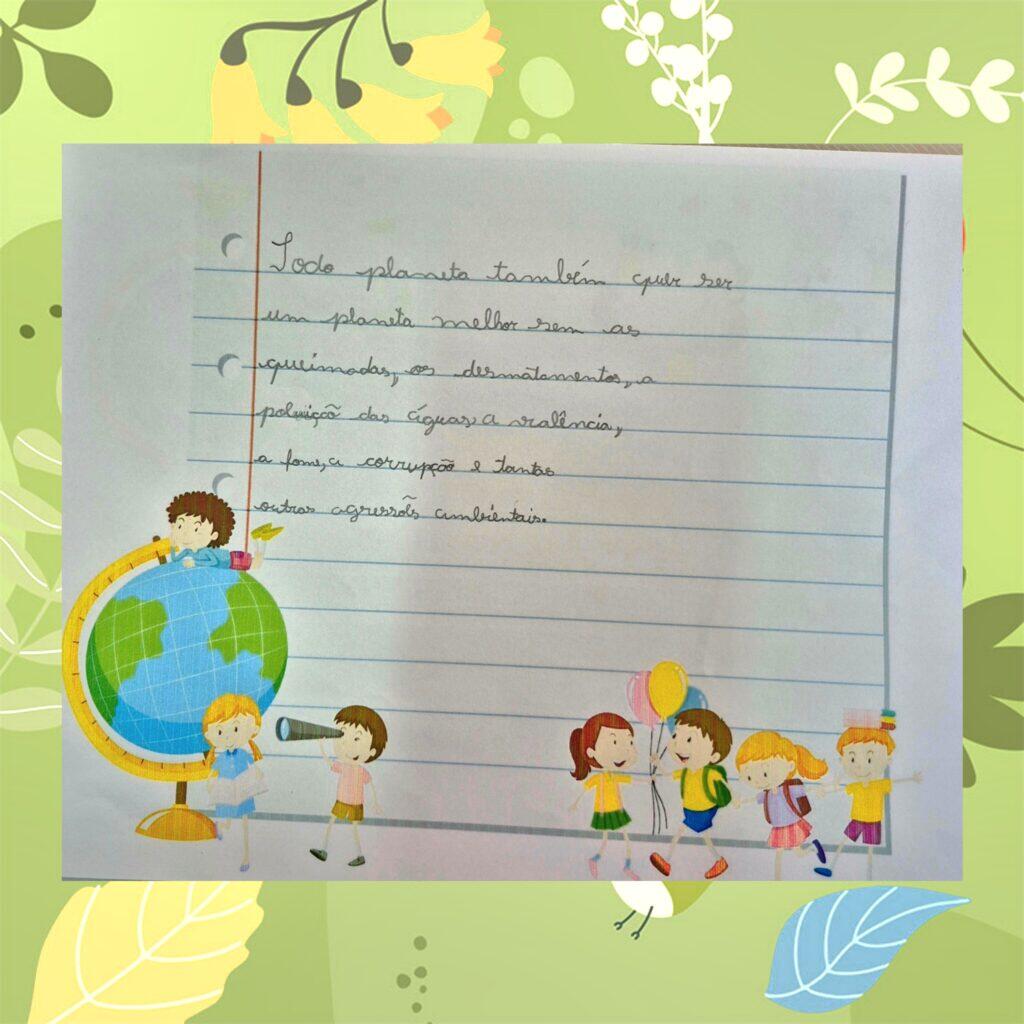 Todo planeta também quer ser
um planeta melhor sem as
queimadas, os desmatamentos, a
poluiçõ das águas, a vialência,
a fome, a corrupção e tantas
outras agressões ambientais.